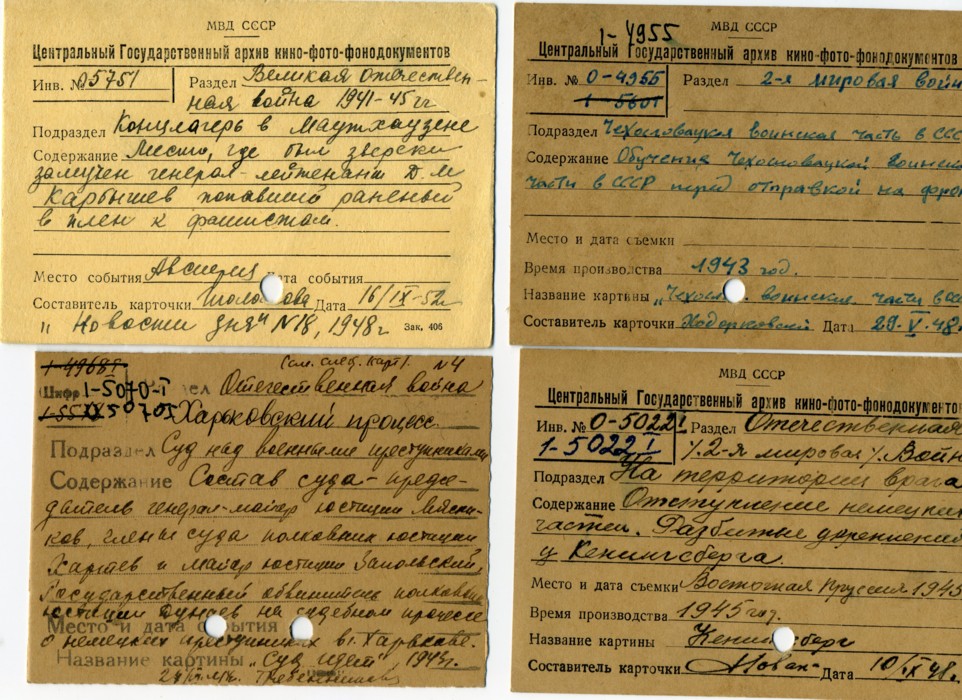 МВД СССР
Центральный Государственный архив кино-фото-фонодокументов
Инв. № 05751 Раздел Великая Отечествен-
ная война 1941-45 гг
Подраздел Концлагерь в Маутхаузене
Содержание Место, где был зверски
замучен генерал-лейтенант Д. М
Карбышев попавший раненый
в плен к фашистам.
Место события Австрия Дата события
Составитель карточки Дата 16/IX-52г
"Новости дня" N18, 1948г Зак. 406
МВД СССР
1-4955
Центральный Государственный архив кино-фото-фонодокументов
Инв. № 0-4955 Раздел 2-я мировая войн
1-5601
Подраздел Чехословацкая воинская часть в ССС
Содержание Обучения Чехословацкой воинско
части в СССР перед отправкой на фрон
Место и дата съемки
Время производства 1943 год.
Название картины „Чехосл. воинская часть в ССС
Составитель карточки Ходорковский Дата 29.V.48г
1-4968I (см. след. карт). N4
Шифр 1-5070-I дел Отечественная война
05 Харьковский процесс
Подраздел Суд над военными преступниками
Содержание Состав суда - предсе-
датель генерал-майор юстиции Мясни-
ков, члены суда полковник юстиции
Харчев и майор юстиции Запольский,
Государственный обвинитель полковник
юстиции Дунаев на судебном процессе
о немецких преступниках в г. Харькове.
Место и дата события
Название картины „Суд идет", 1943г.
МВД СССР
Центральный Государственный архив кино-фото-фонодокументов
Инв. № 0-5022I Раздел Отечественная
1-5022 I /2-я мировая/ Войн
Подраздел На территории врага
Содержание Отступление немецких
частей. Разбитые укрепления
у Кенигсберга.
Место и дата съемки Восточная Пруссия 1945
Время производства 1945 год.
Название картины Кенигсберг
Составитель карточки Дата 10/IX 48г.